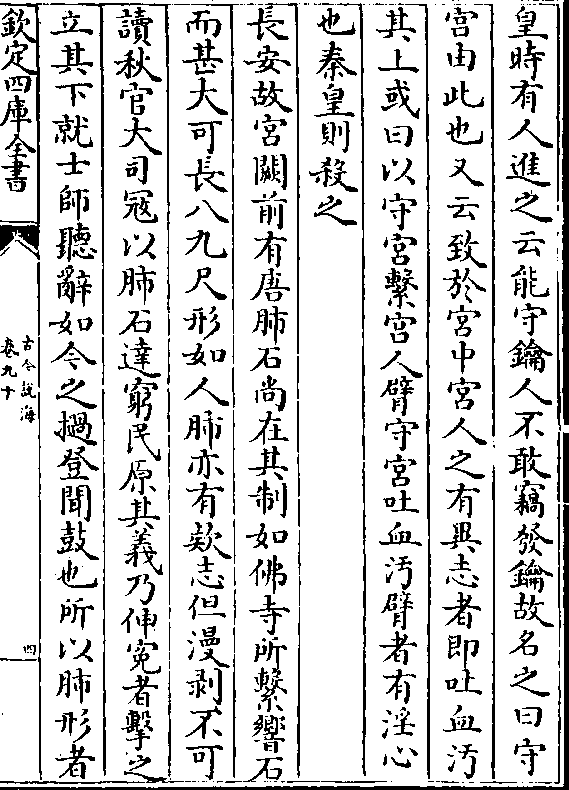 皇時有人進之云能守鑰人不敢竊發鑰故名之曰守
宮由此也又云致於宮中宮人之有異志者即吐血汚
其上或曰以守宮繫宮人臂守宮吐血汚臂者有淫心
也秦皇則殺之
長安故宮闕前有唐肺石尚在其制如佛寺所繫響石
而甚大可長八九尺形如人肺亦有欵志但漫剥不可
讀秋官大司寇以肺石達窮民原其義乃伸寃者擊之
立其下就士師聽辭如今之撾登聞鼓也所以肺形者
欽定四庫全書
古今說海
卷九十
四